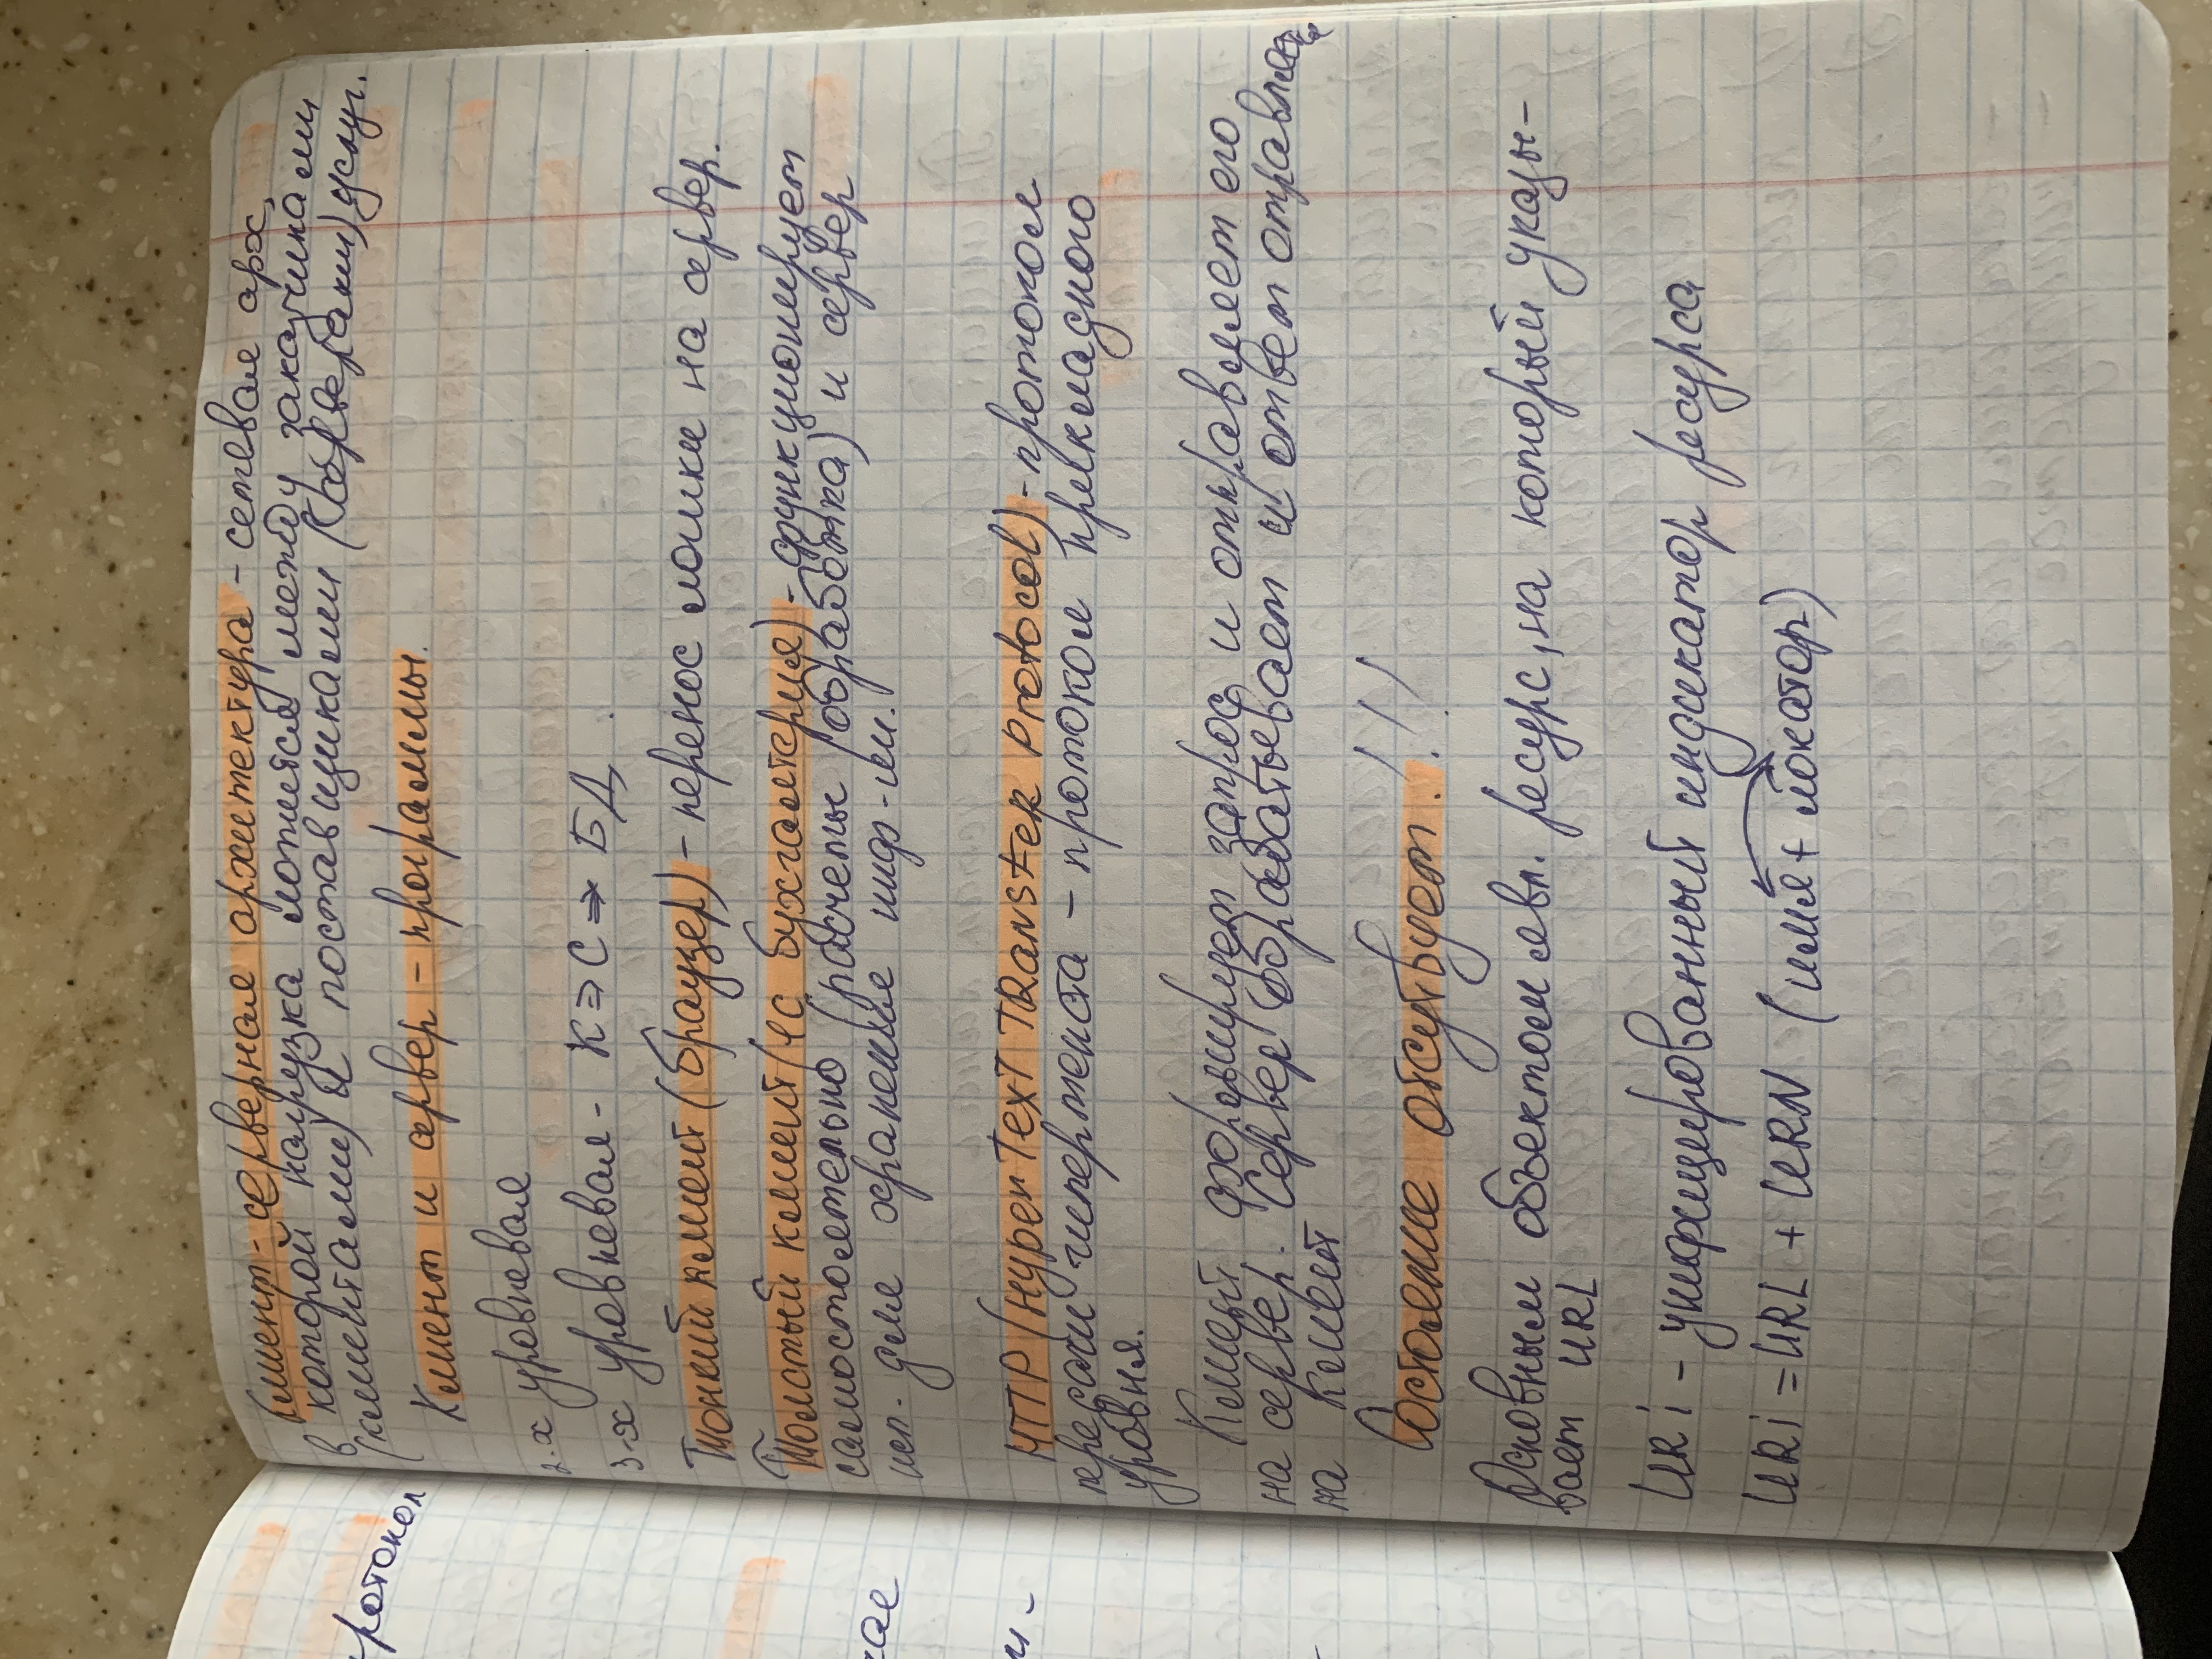 Клиент-серверная архитектура - сетевая арх,
в которой нагрузка ложится между заказчиками
(клиентами) и поставщиками (серверами) услуг.
Клиент и сервер - программы.
2-х уровневая
3-х уровневая - К ⇒ С ⇒ БД.
Тонкий клиент (браузер) - перенос логики на сервер.
Толстый клиент (1с бухгалтерия) - функционирует
самостоятельно (расчеты / обработка) и сервер
исп. для хранения инф-ии.
HTTP (HyperText TRansfeR Protocol) - протокол
передачи гипертекста - протокол прикладного
уровня.
Клиент формирует запрос и отправляет его
на сервер. Сервер обрабатывает и ответ отравляется
на клиент
Состояние отсутвует!!!
Основным объектом явл. ресурс, на который указы-
вает URL
URi - унифицированный индикатор ресурса
URi = URL + URN (имя + локатор)
ротокол
чае
и-